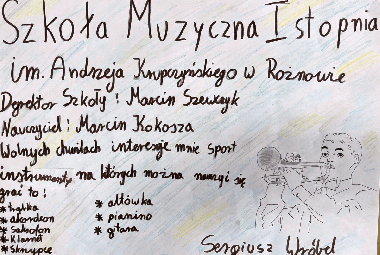 Szkoła Muzyczna I stopnia
im. Andrzeja Krupczyńskiego w Rożnowie
Dyrektor Szkoły: Marcin Szewczyk
Nauczyciel: Marcin Kokosza
Wolnych chwilach interesuje mnie sport
instrumenty na których można nauczyć się
grać to:
* trąbka
* akordeon
* saksofon
* klarnet
* skrzypce
* altówka
* pianino
* gitara
Sergiusz Wróbel